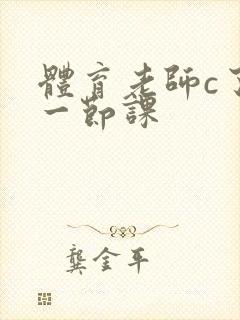 體育老師c了
一節課
龔金平